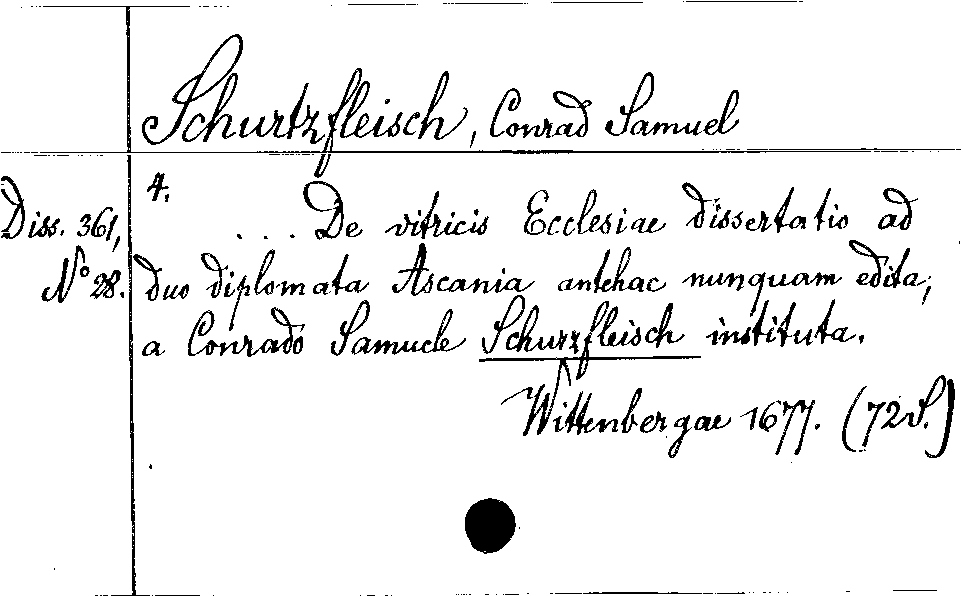 Schurtzfleisch, Conrad Samuel
4.
Diss. 361,
No 28.
. . . De vitricis Ecclesiae dissertatio ad
duo diplomata Ascania antehac nunquam edita,
a Conrado Samuele Schurzfleisch instituta.
Wittenbergae 1677. (72 S.)